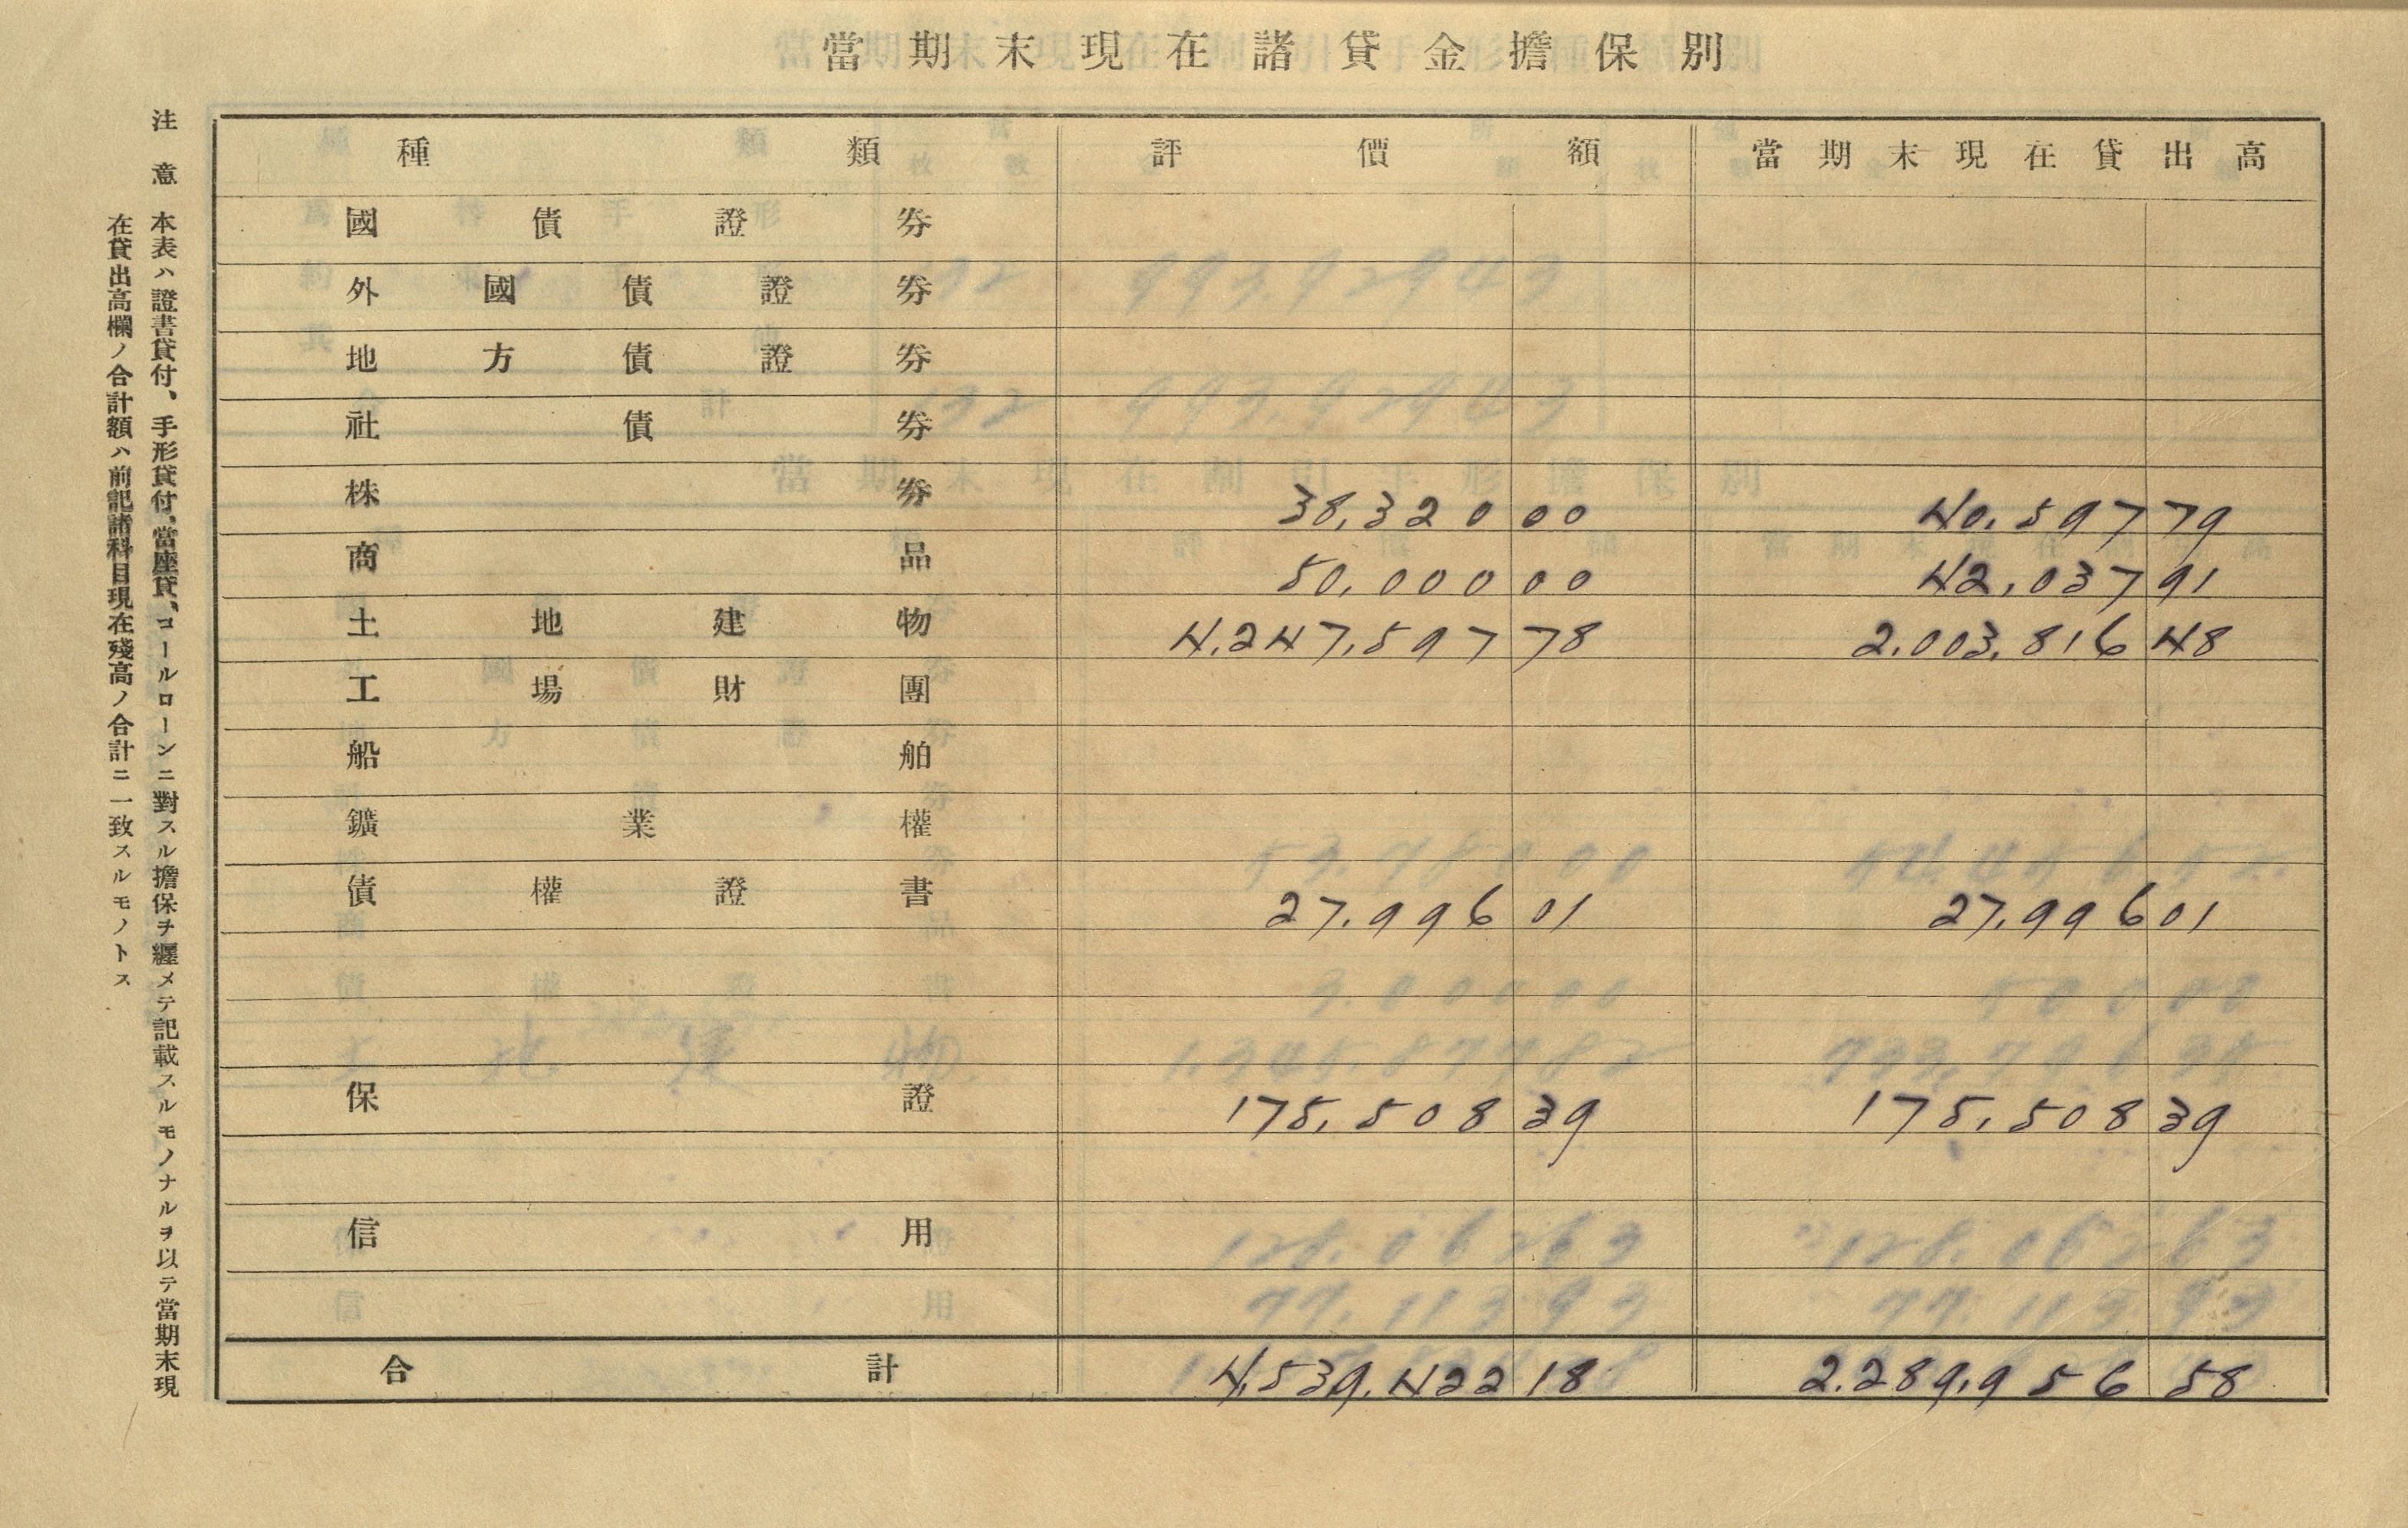 當期末現在諸貸金擔保別
種類 評價額 當期末現在貸出高
國債證券
外國債證券
地方債證券
社債券
株券 38,320 00 40,597 79
商品 50,000 00 42,037 91
土地建物 4,247,597 78 2,003,816 48
工場財團
船舶
鑛業權
債權證書 27,996 01 27,996 01
保證 175,508 39 175,508 39
信用
合計 4,539,422 18 2,289,956 58
注意 本表ハ證書貸付、手形貸付、當座貸、コールローンニ對スル擔保ヲ纒メテ記載スルモノナルヲ以テ當期末現
在貸出高欄ノ合計額ハ前記諸科目現在殘高ノ合計ニ一致スルモノトス